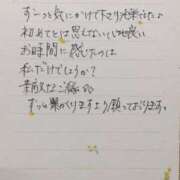 ずーっと気にかけて下さり来てたよ
初めてとは思えないしも良い
お時間に感じたのは
私だけでしょうか？
素敵なご縁が
ずっと巣づくりますより願っております。